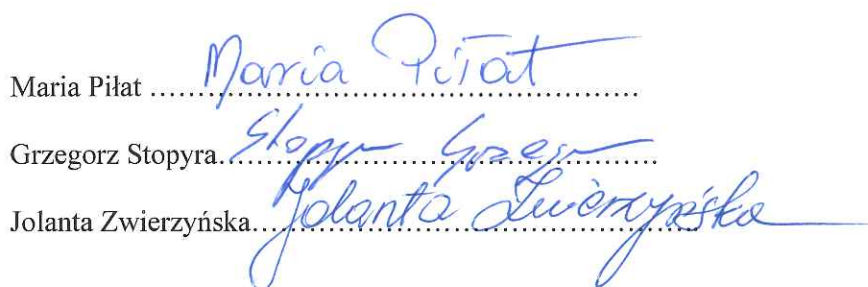 Maria Piłat ................................................ Maria Piłat
Grzegorz Stopyra................................................ Stopyra Grzegorz
Jolanta Zwierzyńska................................................ Jolanta Zwierzyńska